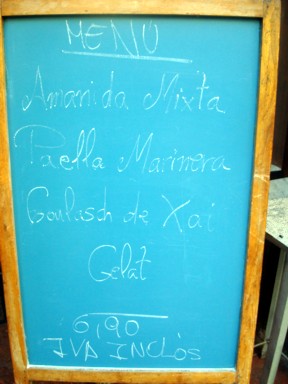 MENU
Amanida Mixta
Paella Marinera
Goulasch de Xai
Gelat
6,90
IVA INCLÒS